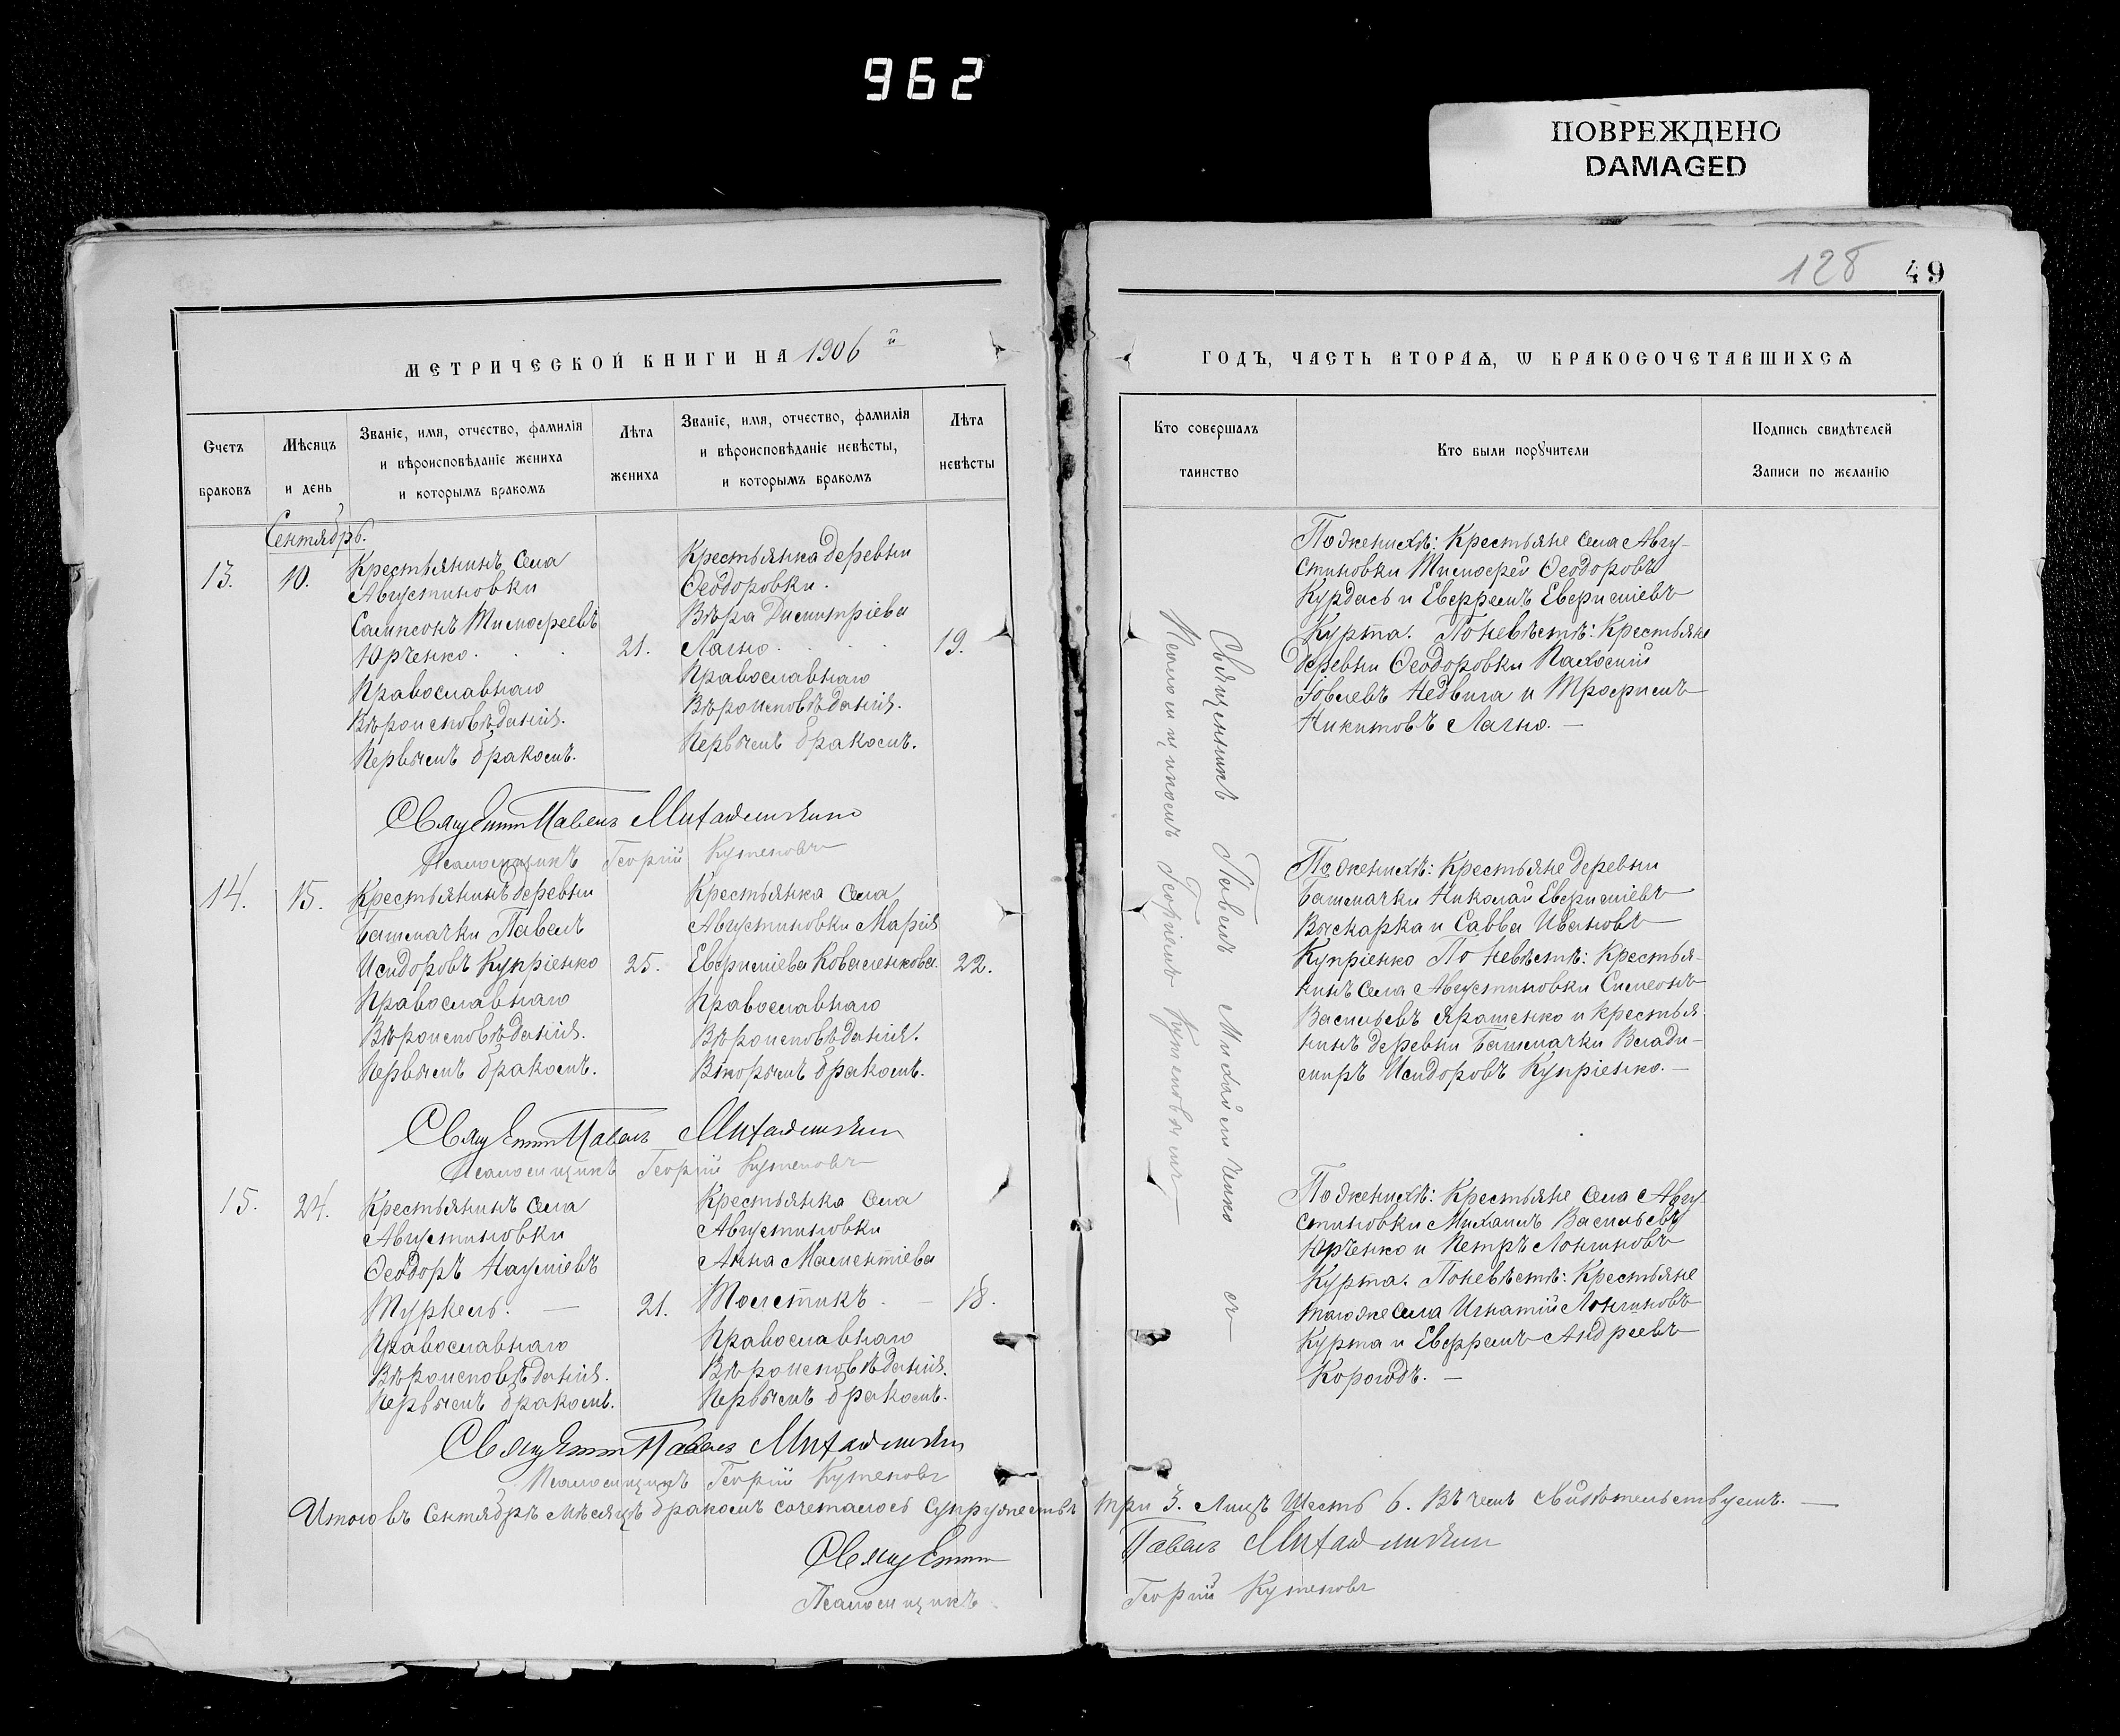 962
ПОВРЕЖДЕНО
DAMAGED
128 49
МЕТРИЧЕСКОЙ КНИГИ НА 1906 й
Счетъ
браковъ
Мѣсяцъ
и день
Званіе, имя, отчество, фамилія
и вѣроисповѣданіе жениха
и которымъ бракомъ
Лѣта
жениха
Званіе, имя, отчество, фамилія
и вѣроисповѣданіе невѣсты,
и которымъ бракомъ
Лѣта
невѣсты
Сентябрь.
13.
10.
Крестьянинъ села
Августиновки
Сампсонъ Тимофеевъ
Юрченко.
Православнаго
Вѣроисповѣданія.
Первымъ бракомъ.
21.
Крестьянка деревни
Ѳеодоровки.
Вѣра Димитріева
Лагно
Православнаго
Вѣроисповѣданія.
Первымъ бракомъ.
19.
Павелъ
Псаломщикъ Георгій Кутеповъ
14.
15.
Крестьянинъ деревни
Башмачки Павелъ
Исидоровъ Купріенко
Православнаго
Вѣроисповѣданія.
Первымъ бракомъ.
25.
Крестьянка села
Августиновки Марія
Евфиміева Коваленкова.
Православнаго
Вѣроисповѣданія.
Вторымъ бракомъ.
22.
Павелъ
Псаломщикъ Георгій Кутеповъ
15.
24.
Крестьянинъ села
Августиновки
Ѳеодоръ Наумовъ
Православнаго
Вѣроисповѣданія.
Первымъ бракомъ.
21.
Крестьянка села
Августиновки
Анна Мелентіева
Толстикъ.
Православнаго
Вѣроисповѣданія.
Первымъ бракомъ.
18.
Павелъ
Псаломщикъ Георгій Кутеповъ
Итого въ Сентябрѣ мѣсяцѣ бракомъ сочеталось супружествъ три 3. Лицъ шесть 6. Въ чемъ свидѣтельствуемъ. —
Павелъ
Псаломщикъ Георгій Кутеповъ
ГОДЪ, ЧАСТЬ ВТОРАѦ, Ѡ БРАКОСОЧЕТАВШИХСѦ
Кто совершалъ
таинство
Кто были порꙋчители
Подпись свидѣтелей
Записи по желанію
Священникъ Павелъ Михайличенко съ
Псаломщикомъ Георгіемъ Кутеповымъ
По женихѣ: Крестьяне села Авгу-
стиновки Тимофей Ѳеодоровъ
Курдась и Ефремъ Евфиміевъ
Курта. По невѣстѣ: Крестьяне
деревни Ѳеодоровки Пахомій
Іовлевъ Недвига и Трофимъ
Никитовъ Лагно. —
По женихѣ: Крестьяне деревни
Башмачки Николай Евфиміевъ
и Савва Ивановъ
Купріенко По невѣстѣ: Крестья-
нинъ села Августиновки Симеонъ
Васильевъ Ярошенко и крестья-
нинъ деревни Башмачки Влади-
миръ Исидоровъ Купріенко. —
По женихѣ: Крестьяне села Авгу-
стиновки Михаилъ Васильевъ
Юрченко и Петръ Логиновъ
Курта. По невѣстѣ: Крестьяне
тогоже села Игнатій Логиновъ
Курта и Ефремъ Андреевъ